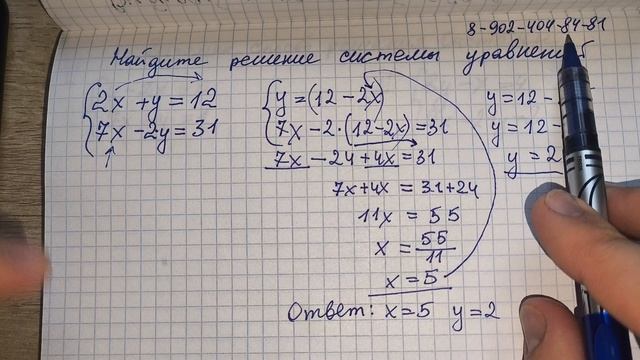 8-902-404-84-81
Найдите решение системы уравнений
2x + y = 12
7x - 2y = 31
y = (12 - 2x)
7x - 2·(12 - 2x) = 31
7x - 24 + 4x = 31
7x + 4x = 31 + 24
11x = 55
x = 55/11
x = 5
y = 12 -
y = 12 -
y = 2
Ответ: x = 5 y = 2